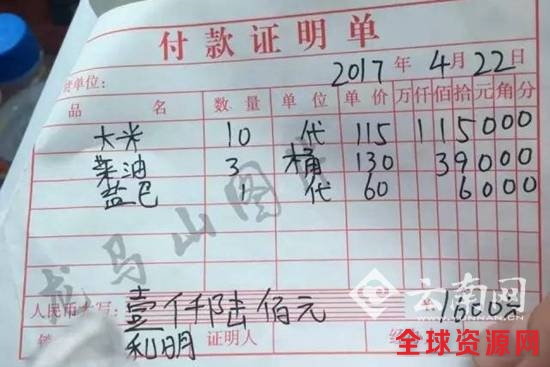 付款证明单
2017年4月22日
货单位:
品名 数量 单位 单价 万仟佰拾元角分
大米 10 代 115 115000
菜油 3 桶 130 39000
盐巴 1 代 60 6000
龙马山图片
人民币大写: 壹仟陆佰元 ¥1600元
利明 证明人 经
云南网
YUNNAN.CN
全球资源网